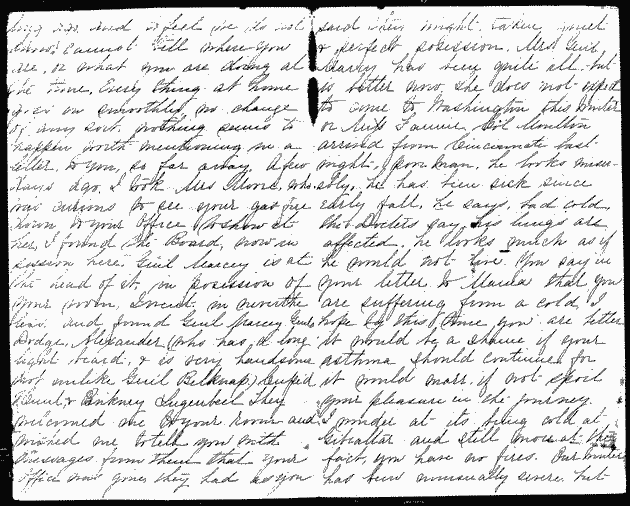 long ago. And I feel we do not
know, cannot tell where you
are, or what you are doing at
the time. Every thing at home
goes on smoothly, no change
of any sort. nothing seems to
happen worth mentioning in a
letter, to you, so far away. A few
days ago, I took Mrs who
was curious to see your gas fire
down to your Office, to show it
her, I found the Board, now in
session here. Genl Marcy is at
the head of it, in possession of
your room. I went in never the
less, and found Genl Marcy, Genl
Dodge, Alexander (who has a long
light beard, & is very handsome
not unlike Genl Belknap)
& They
welcomed me to your room and
wished me to tell you with
messages from them that your
office was gone, they had as you
said they might, taken quiet
& perfect possession. Mrs Genl
Marcy has been quite ill, but
is better now, she does not expect
to come to Washington this Winter
or Miss Fannie. Col Moulton
arrived from Cincinnati last
night. Poor man. he looks miser-
ably, he has been sick since
early fall, he says, bad cold
the Doctors say, his lungs are
affected. he looks much as if
he would not live. You say in
your letter to Mama that you
are suffering from a cold, I
hope by this time you are better
it would be a shame if your
asthma should continue, for
it would mar, if not spoil
your pleasure in the journey.
I wonder at its being cold at
Gibraltar and still more at the
fact, you have no fires. Our winter
has been unusually severe, but